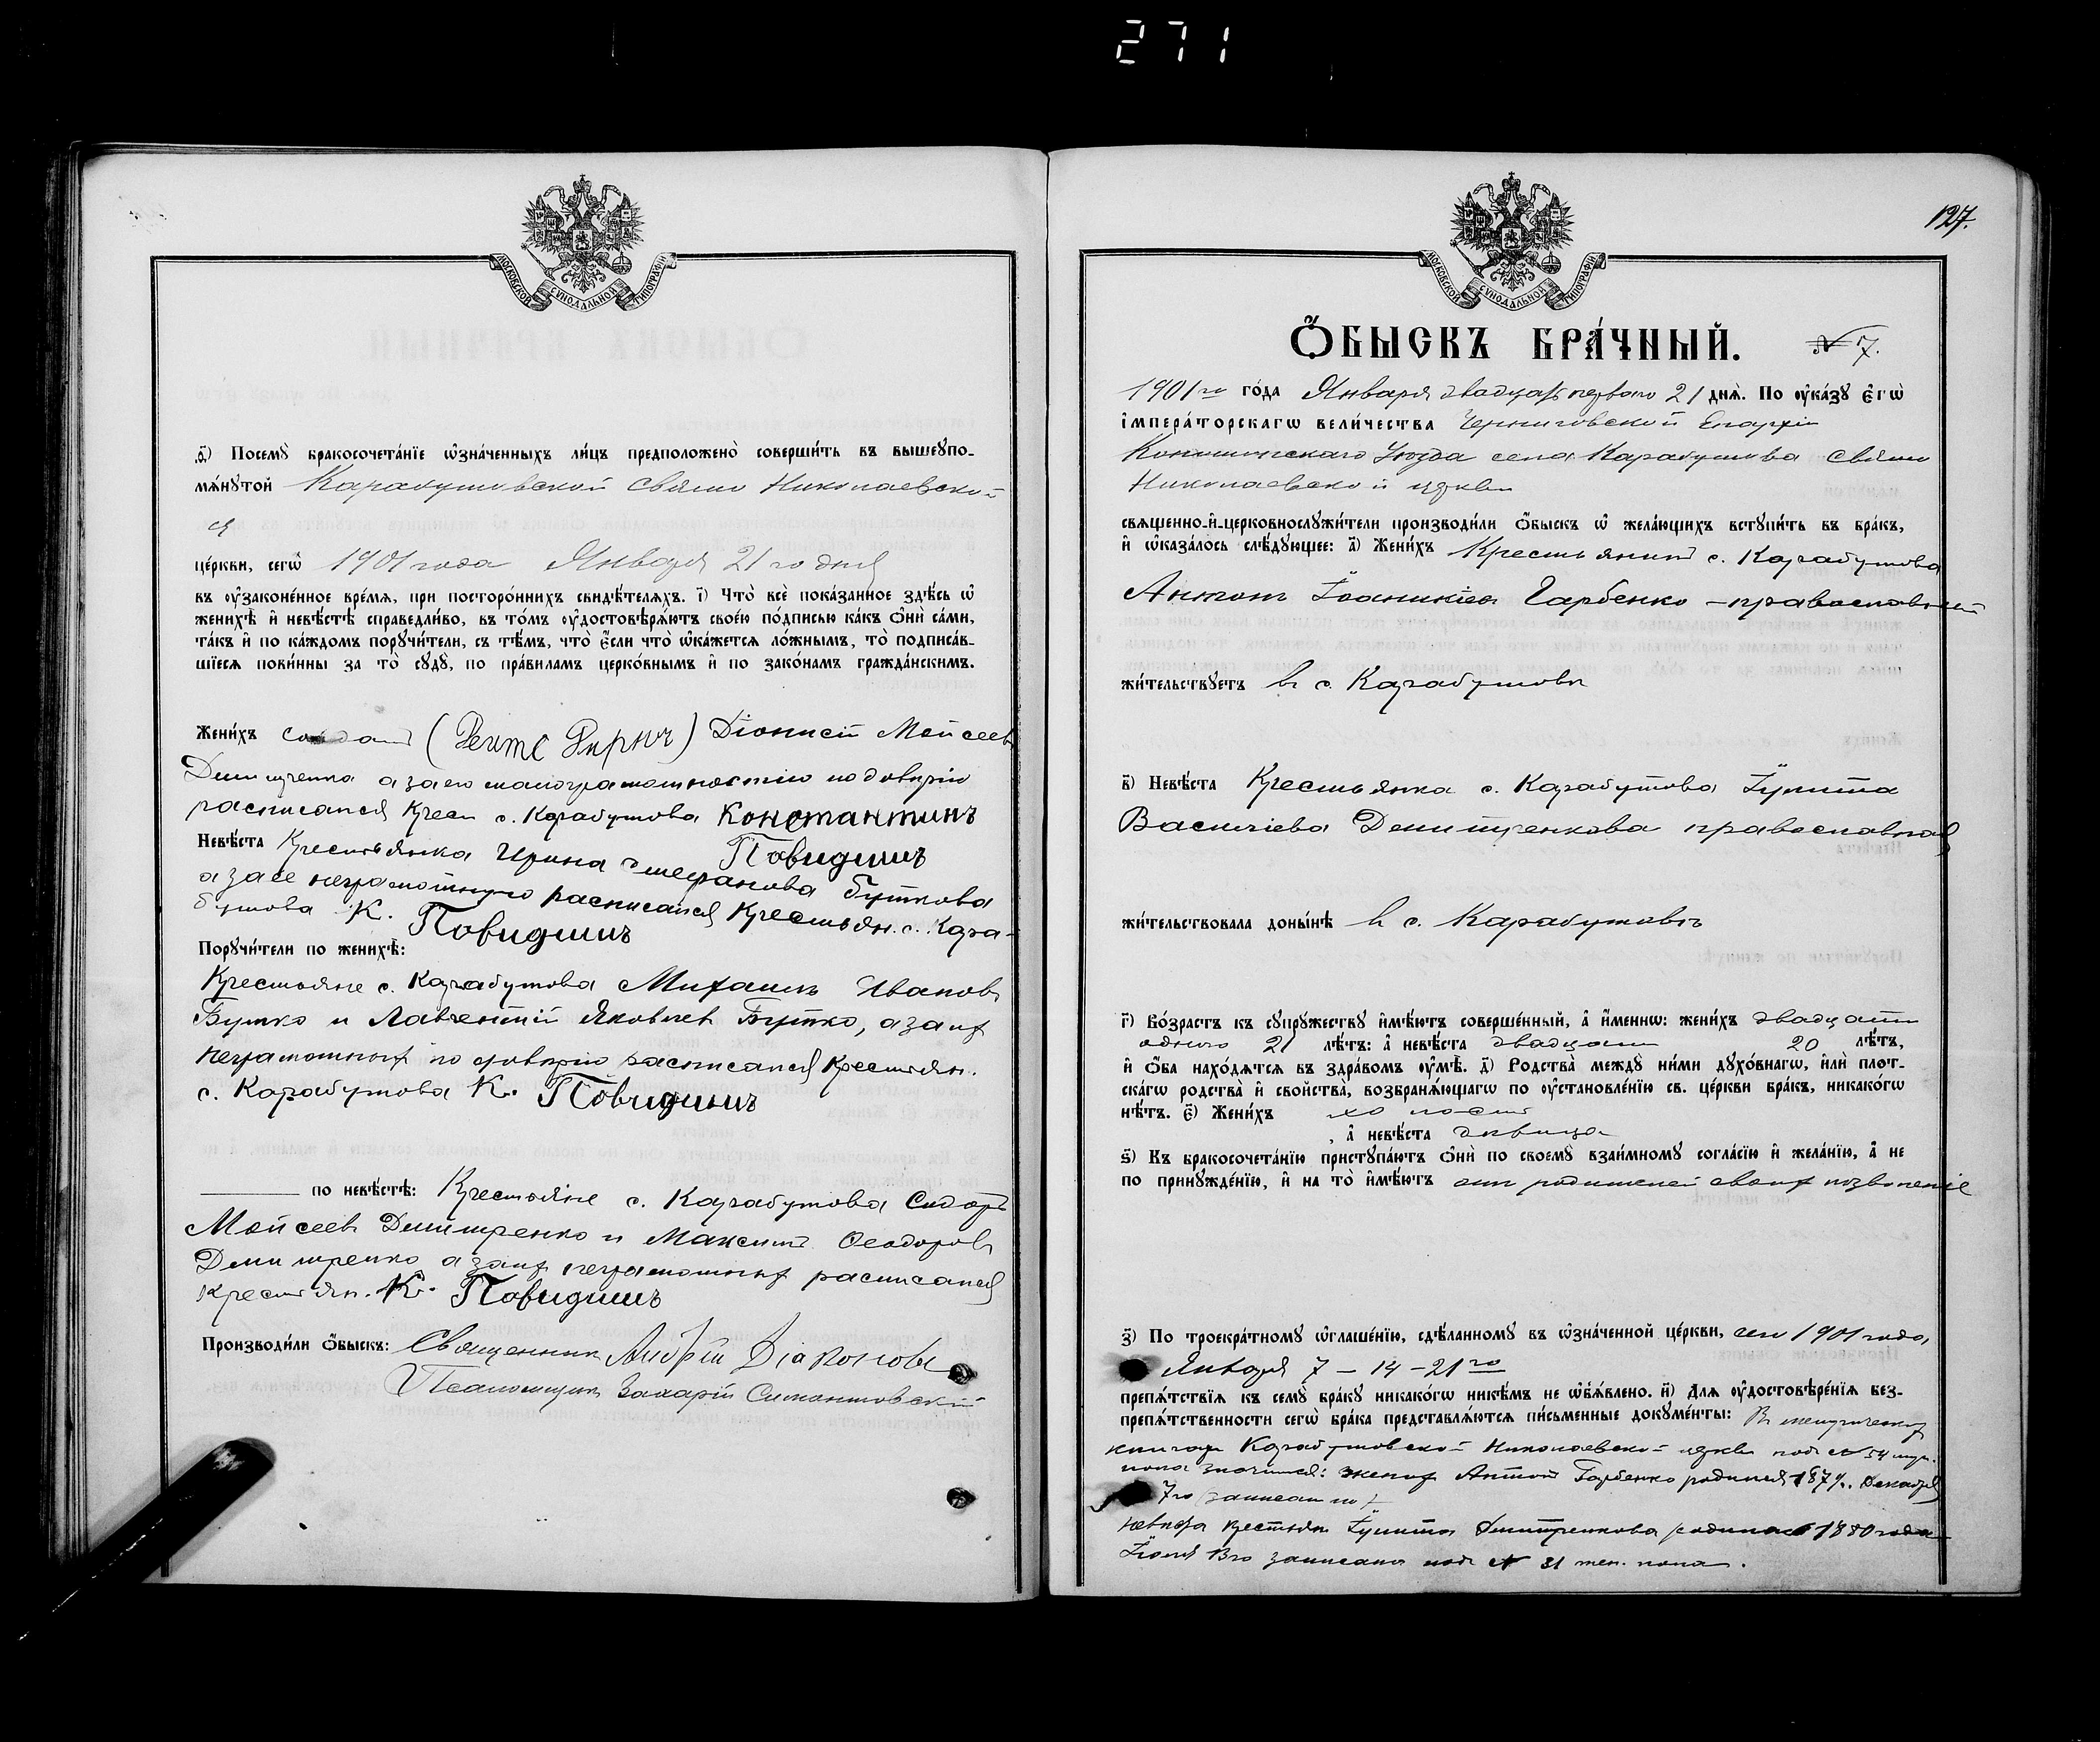 271
МОСКОВСКОЙ СѴНОДАЛЬНОЙ ТИПОГРАФІИ
ѳ҃) Посемꙋ̀ бракосочета́нїе ѡ҆зна́ченныхъ ли́цъ предположено̀ соверши́ть въ вышеꙋпо-
мѧ́нꙋтой Карабутовской Свято Николаевской
це́ркви, сегѡ̀ 1901 года Января 21 го дня
въ ѹ҆зако́ненное вре́мѧ, при посторо́ннихъ свидѣ́телѧхъ. і҃) Что̀ всѐ пока́занное здѣ́сь ѡ҆
женихѣ̀ и҆ невѣ́стѣ справедли́во, въ то́мъ ѹ҆достовѣрѧ́ютъ свое́ю по́дписью ка́къ ѻ҆нѝ са́ми,
та́къ и҆ по ка́ждомъ порꙋчи́тели, съ тѣ́мъ, что̀ є҆́сли что̀ ѡ҆ка́жетсѧ ло́жнымъ, то̀ подписа́в-
шїесѧ пови́нны за то̀ сꙋдꙋ̀, по пра́виламъ церко́внымъ и҆ по зако́намъ гражда́нскимъ.
Жени́хъ солдат ( ) Діонисій Мойсеев
Дмитренко а за его малограмотностію по довѣрію
расписался Крест. с. Карабутова Константинъ
Повидишъ
Невѣ́ста Крестьянка Ирина Стефанова Буткова
а за се неграмотную расписался Крестьян. с. Кара-
бутова К. Повидишъ
Порꙋчи́тели по женихѣ̀:
Крестьяне с. Карабутова Михаилъ Ивановъ
Бутко и Лавчентій Яковлев Бутко, а за их
неграмотных по довѣрію расписался Крестьян.
с. Карабутова К. Повидишъ
по невѣ́стѣ: Крестьяне с. Карабутова Сидоръ
Мойсеевъ Дмитренко и Максимъ Ѳеодоровъ
Дмитренко а за их неграмотных расписался
Крестьян. К. Повидишъ
Производи́ли ѻ҆́быскъ: Священникъ Андрей Діаконовъ
Псаломщикъ Захарій Симонтовскій
127.
МОСКОВСКОЙ СѴНОДАЛЬНОЙ ТИПОГРАФІИ
Ѻ҆́БЫСКЪ БРА́ЧНЫЙ. № 7.
1901 го го́да Января двадцать перваго 21 днѧ̀. По ѹ҆ка́зꙋ Є҆гѡ̀
і҆мпера́торскагѡ вели́чества Черниговской Епархіи
Конотопскаго Уѣзда села Карабутова Свято
Николаевской церкви
свѧщенно-и҆-церковнослꙋжи́тели производи́ли ѻ҆́быскъ ѡ҆ жела́ющихъ встꙋпи́ть въ бра́къ,
и҆ ѡ҆каза́лось слѣ́дꙋющее: а҃) Жени́хъ Крестьянинъ с. Карабутова
Антон Іоаникіев Гарбенко – православный
жи́тельствꙋетъ в с. Карабутовѣ
в҃) Невѣ́ста Крестьянка с. Карабутова Іулита
Васильева Демитренкова православная
жи́тельствовала доны́нѣ в с. Карабутовѣ
г҃) Во́зрастъ къ сꙋпрꙋ́жествꙋ и҆мѣ́ютъ соверше́нный, а҆ и҆́меннѡ: жени́хъ двадцати
одного 21 лѣ́тъ: а҆ невѣ́ста двадцати 20 лѣ́тъ,
и҆ ѻ҆́ба нахо́дѧтсѧ въ здра́вомъ ѹ҆мѣ̀. д҃) Родства̀ междꙋ̀ ни́ми дꙋхо́внагѡ, и҆лѝ плот-
ска́гѡ родства̀ и҆ сво́йства̀, возбранѧ́ющагѡ по ѹ҆становле́нїю св. це́ркви бра́къ, никако́гѡ
нѣ́тъ. є҃) Жени́хъ холостъ
, а҆ невѣ́ста дѣвица
ѕ҃) Къ бракосочета́нїю пристꙋпа́ютъ ѻ҆нѝ по своемꙋ̀ взаи́мномꙋ согла́сїю и҆ жела́нїю, а҆ не
по принꙋжде́нїю, и҆ на то̀ и҆мѣ́ютъ от родителей своих позволеніе
з҃) По троекра́тномꙋ ѡ҆глаше́нїю, сдѣ́ланномꙋ въ ѡ҆зна́ченной це́ркви, сего 1901 года,
Января 7 – 14 – 21 го
препѧ́тствїѧ къ семꙋ̀ бра́кꙋ никако́гѡ никѣ́мъ не ѡ҆б̾ѧ́влено. и҃) Длѧ ѹ҆достовѣре́нїѧ без-
препѧ́тственности сегѡ̀ бра́ка представлѧ́ютсѧ пи́сьменные докꙋме́нты: В метрических
книгах Карабутовской Николаевской церкви под № 54 муж.
пола значится: жених Антон Гарбенко родился 1879. Декабря
7 го записан
невѣста крестьян. Іулита Дмитренкова родилась 1880 года
Іюня 13 го записана под № 31 жен. пола.